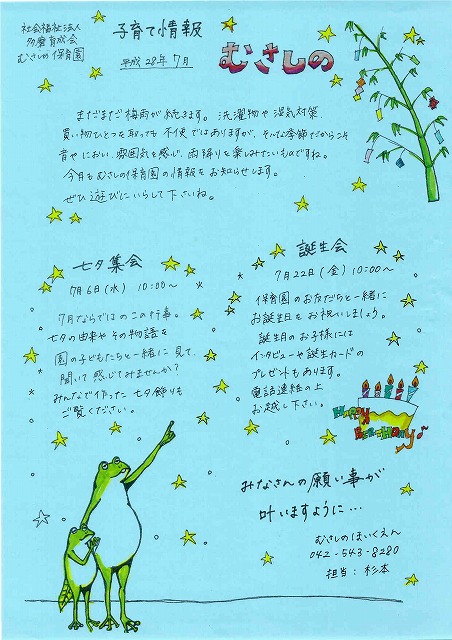 社会福祉法人
多摩育成会
むさしの保育園
子育て情報
平成28年7月
むさしの
まだまだ梅雨が続きます。洗濯物や湿気対策
買い物ひとつを取っても不便ではありますが、そんな季節だからこそ
音やにおい、雰囲気を感じ、雨降りを楽しみたいものですね。
今月もむさしの保育園の情報をお知らせします。
ぜひ遊びにいらして下さいね。
七夕集会
7月6日(水) 10:00〜
7月ならではのこの行事。
七夕の由来やその物語を
園の子どもたちと一緒に見て
聞いて感じてみませんか?
みんなで作った七夕飾りも
ご覧ください。
誕生会
7月22日(金) 10:00〜
保育園のお友だちと一緒に
お誕生日をお祝いしましょう。
誕生月のお子様には
インタビューや誕生カードの
プレゼントもあります。
電話連絡の上
お越し下さい。
HAPPY
BIRTHDAY
みなさんの願い事が
叶いますように…
むさしのほいくえん
042-543-8280
担当:杉本